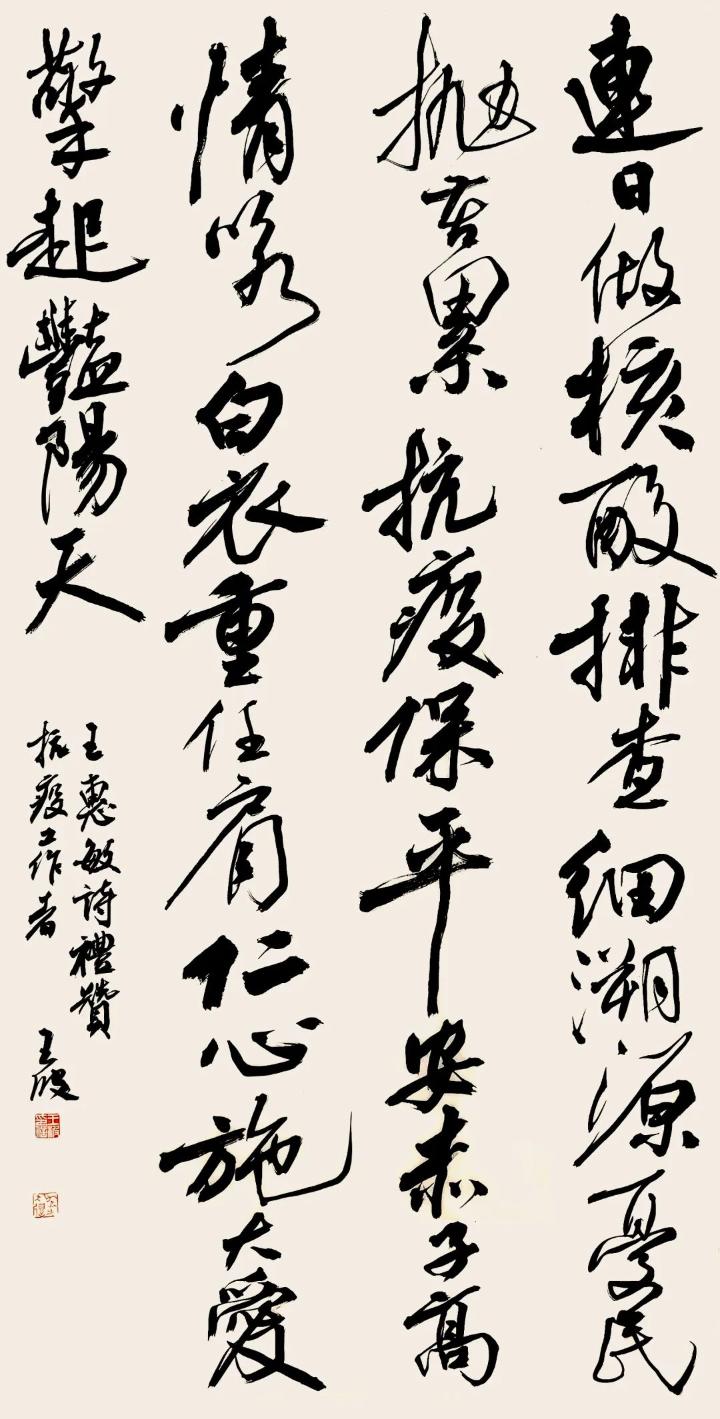 連日做核酸排查細溯源憂民
抛苦累抗疫保平安赤子高
情詠白衣重任肩仁心施大愛
擎起豔陽天
王惠敏詩禮贊
抗疫工作者